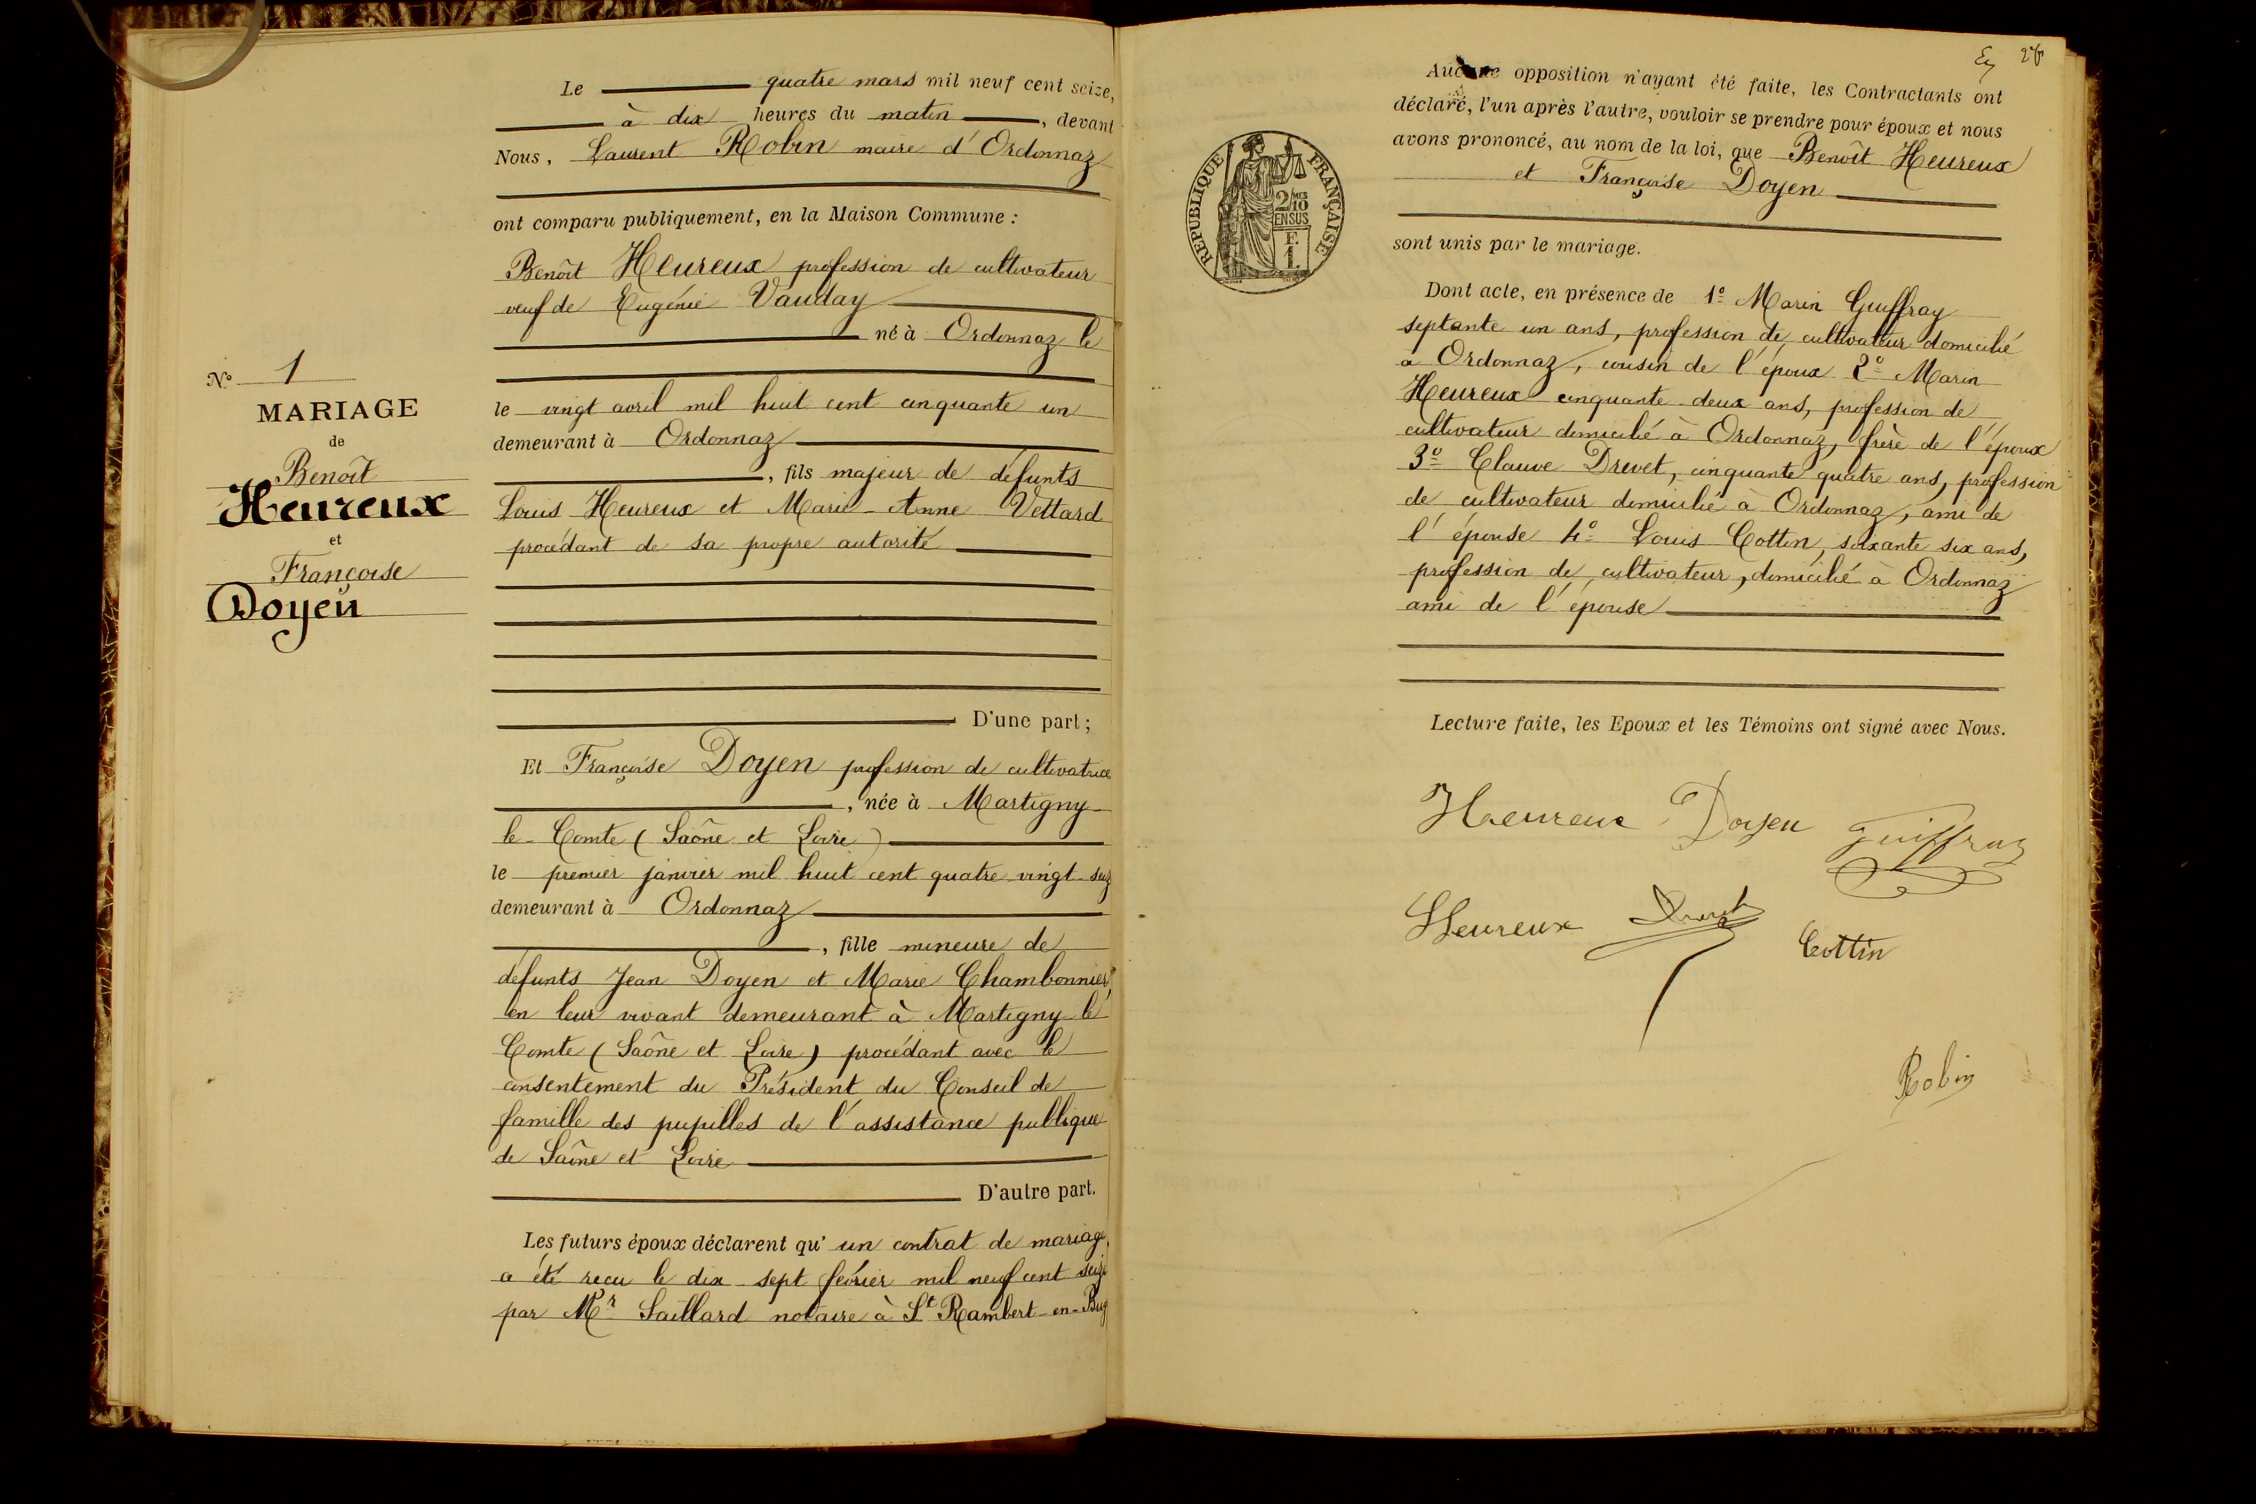 Le quatre mars mil neuf cent seize,
à dix heures du matin, devant
Nous, Laurent Robin maire d'Ordonnaz
ont comparu publiquement, en la Maison Commune :
Benoît Heureux profession de cultivateur
veuf de Eugénie Vauday
né à Ordonnaz le
le vingt avril mil huit cent cinquante un
demeurant à Ordonnaz
, fils majeur de défunts
Louis Heureux et Marie-Anne Vettard
procédant de sa propre autorité
D'une part ;
Et Françoise Doyen profession de cultivatrice
, née à Martigny
le-Comte (Saône et Loire)
le premier janvier mil huit cent quatre-vingt-seiz
demeurant à Ordonnaz
, fille mineure de
défunts Jean Doyen et Marie Chambonnier,
en leur vivant demeurant à Martigny-le
Comte (Saône et Loire) procédant avec le
consentement du Président du Conseil de
famille des pupilles de l'assistance publique
de Saône et Loire
D'autre part.
Les futurs époux déclarent qu'un contrat de mariage
a été recu le dix-sept février mil neuf cent seize
par Mr Saillard notaire à St Rambert-en-Bug
No 1
MARIAGE
de
Benoît
Heureux
et
Françoise
Doyen
REPUBLIQUE FRANÇAISE
2/10
EN SUS
F.
1.
Aucune opposition n'ayant été faite, les Contractants ont
déclaré, l'un après l'autre, vouloir se prendre pour époux et nous
avons prononcé, au nom de la loi, que Benoît Heureux
et Françoise Doyen
sont unis par le mariage.
Dont acte, en présence de 1o Marin Guiffray
septante un ans, profession de cultivateur domicilié
a Ordonnaz, cousin de l'époux 2o Marin
Heureux cinquante deux ans, profession de
cultivateur domicilié à Ordonnaz, frère de l'époux
3o Clauve Drevet, cinquante quatre ans, profession
de cultivateur domicilié à Ordonnaz, ami de
l'épouse 4o Louis Cottin, soixante six ans,
profession de cultivateur, domicilié à Ordonnaz
ami de l'épouse
Lecture faite, les Epoux et les Témoins ont signé avec Nous.
Heureux Doyen Guiffray
Heureux Drevet Cottin
Robin